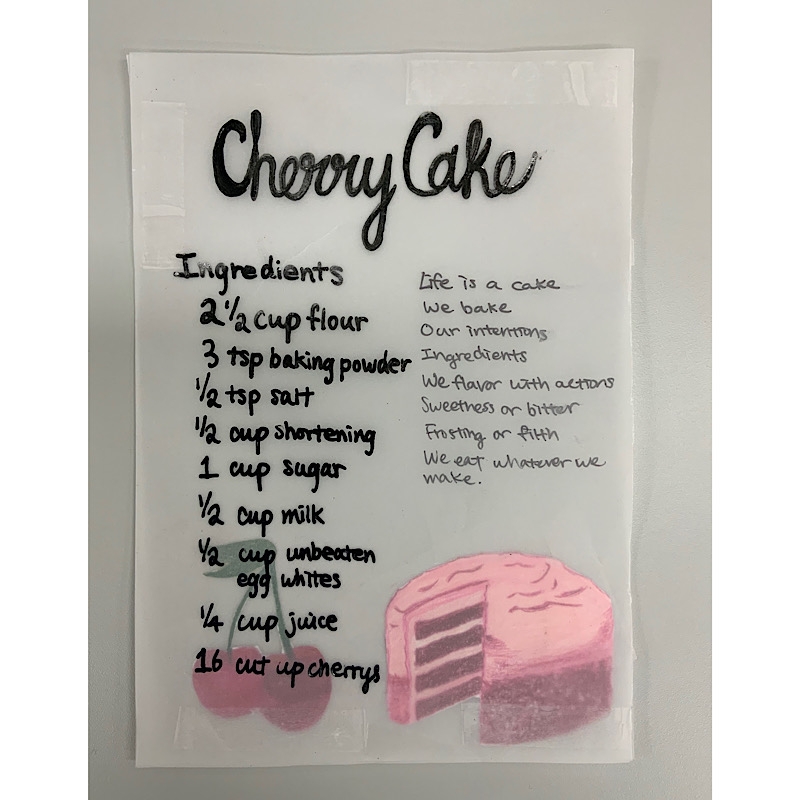 Cherry Cake
Ingredients
2 1/2 cup flour
3 tsp baking powder
1/2 tsp salt
1/2 cup shortening
1 cup sugar
1/2 cup milk
1/2 cup unbeaten
egg whites
1/4 cup juice
16 cut up cherrys
Life is a cake
We bake
Our intentions
Ingredients
We flavor with actions
Sweetness or bitter
Frosting or filth
We eat whatever we
make.